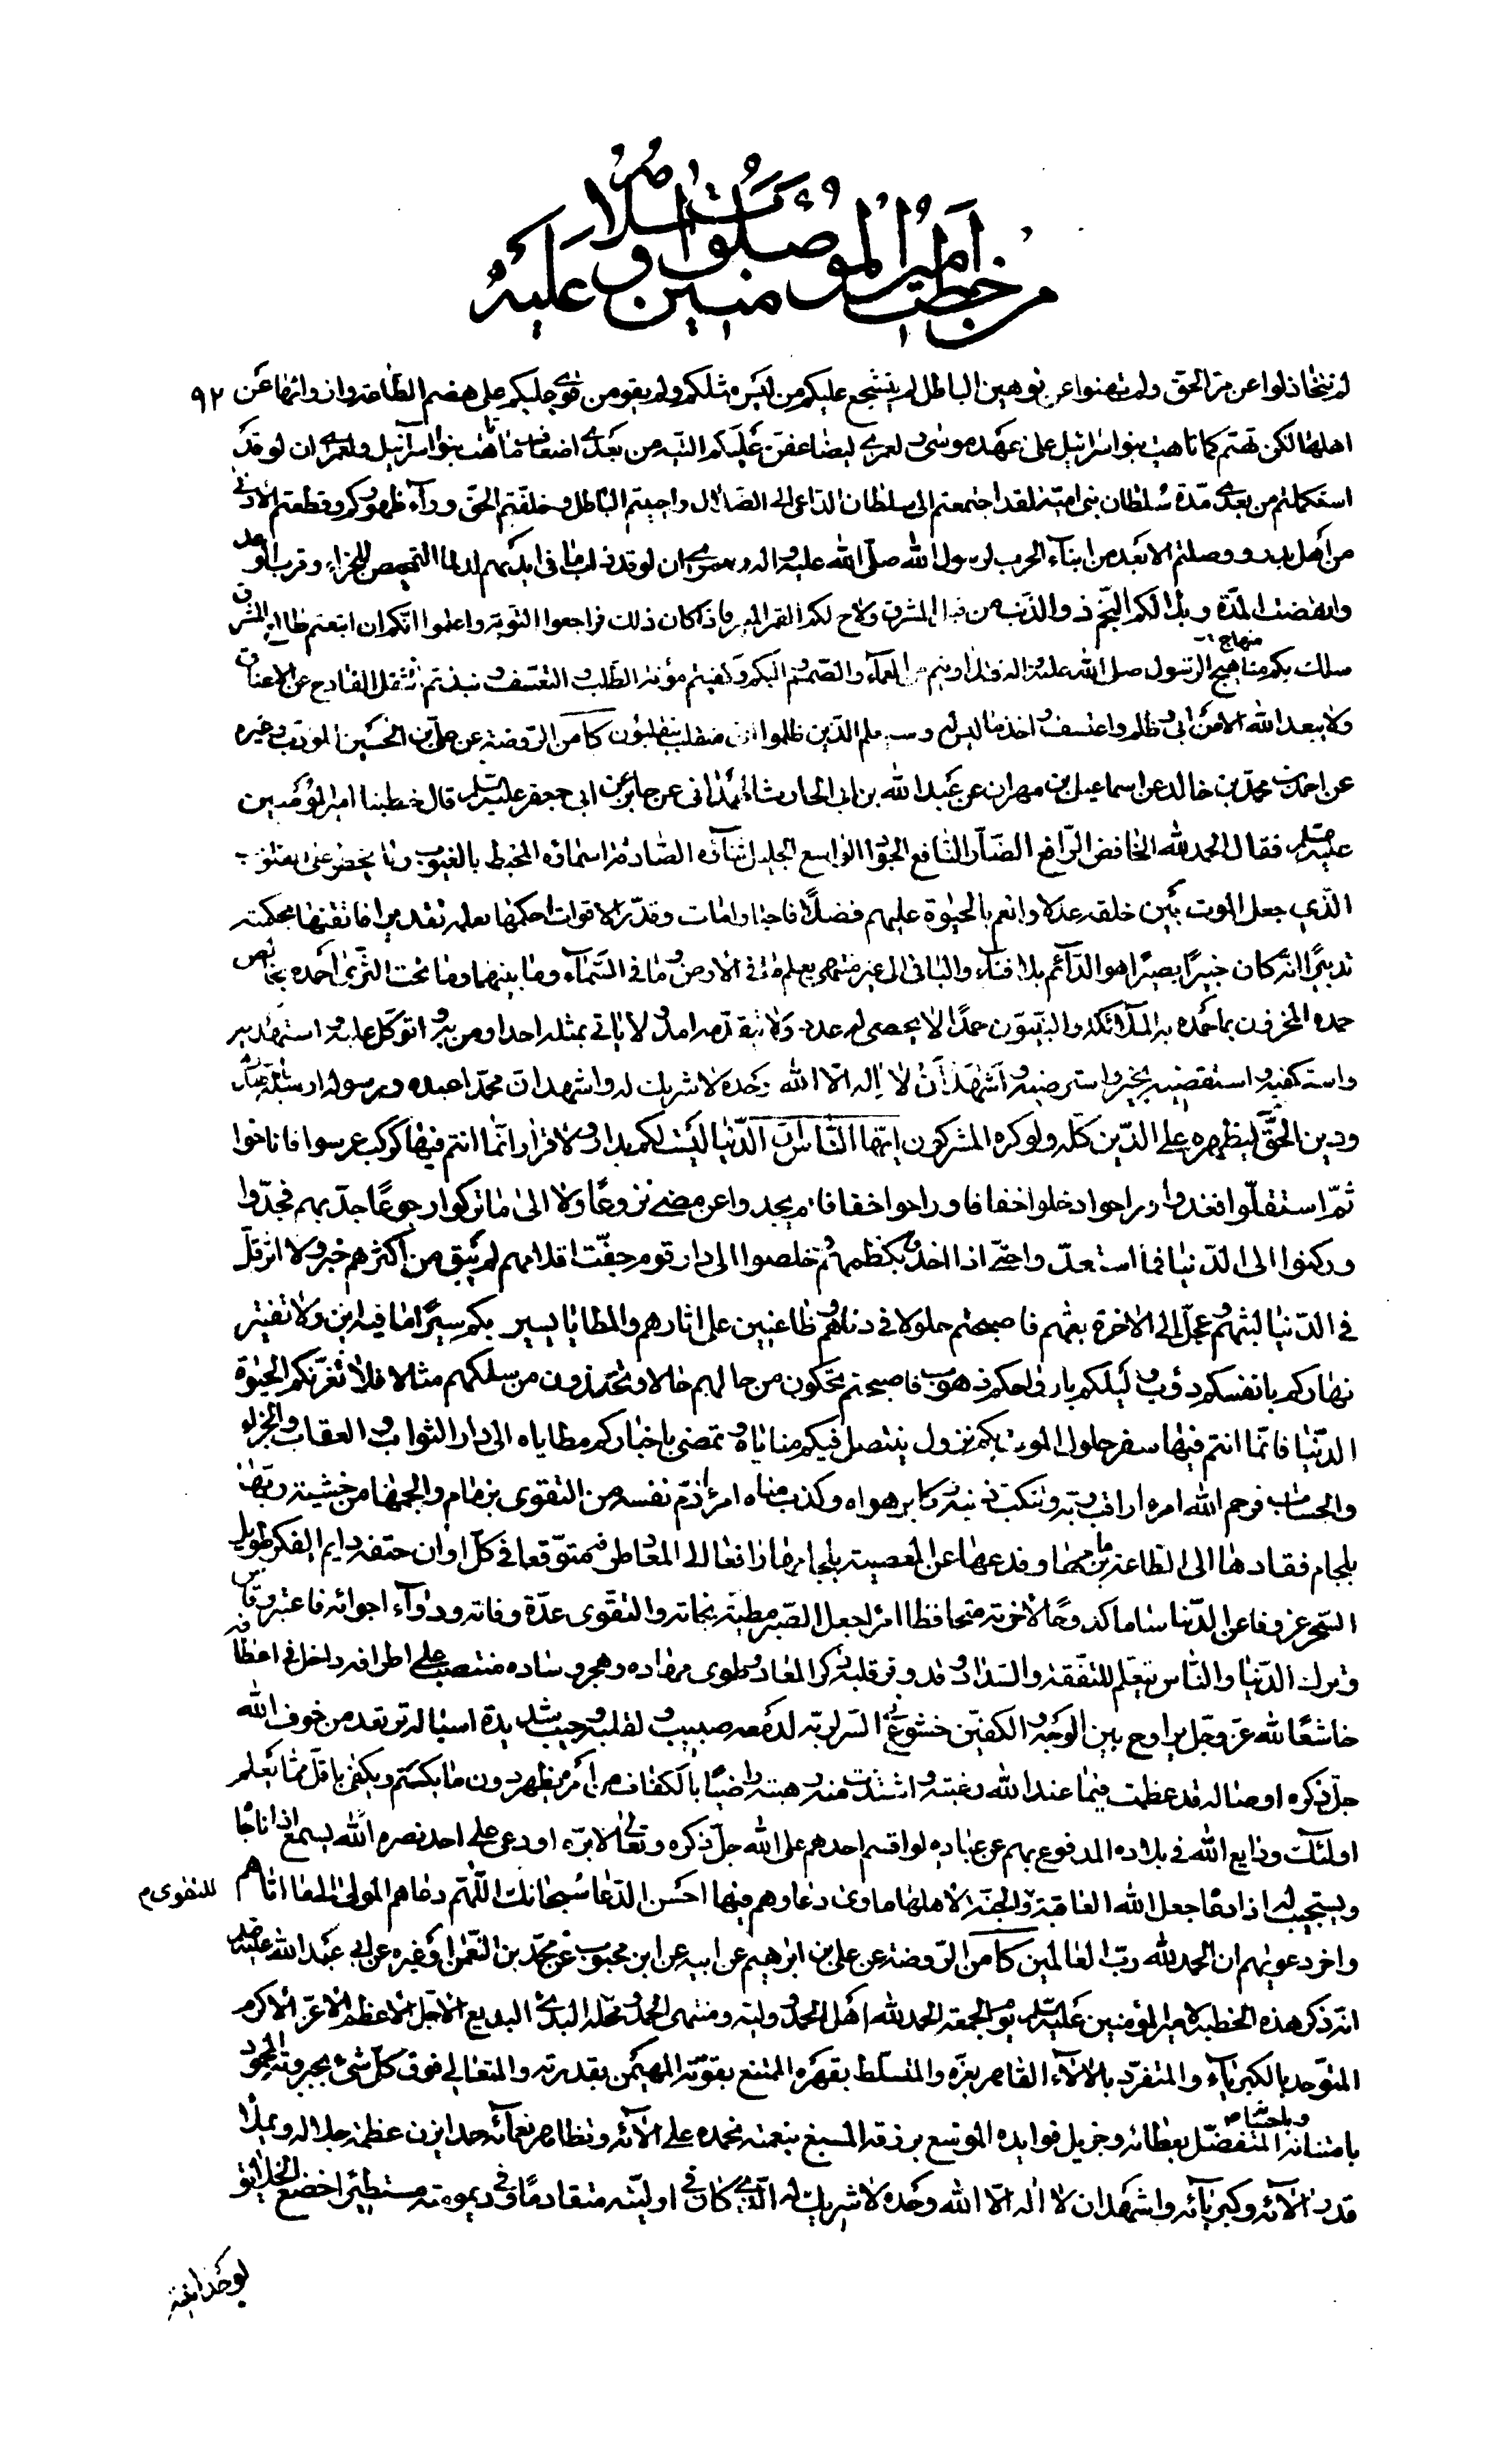 من خطب امير المؤمنين صلوات الله وسلامه عليه
لم تتخاذلوا عن مر الحق ولم تهنوا عن توهين الباطل لم يتشجع عليكم من ليس مثلكم ولم يقو من قوى عليكم على هضم الطاعة وازوائها عن ٩٢
اهلها لكن تهتم كما تاهت بنو اسرائيل على عهد موسى ولعمرى ليضاعفن عليكم التيه من بعدى اضعاف ما تاهت بنو اسرائيل ولعمرى ان لو قد
استكملتم من بعدى مدة سلطان بنى امية لقد اجتمعتم الى سلطان الداعى الى الضلال واحييتم الباطل وخلفتم الحق وراء ظهوركم وقطعتم الادنى
من اهل بدر ووصلتم الابعد من ابناء الحرب لرسول الله صلى الله عليه واله ولعمرى ان لو قد ذاب ما فى ايديهم لدنا التمحيص للجزاء وقرب الوعد
وانقضت المدة وبدا لكم النجم ذو الذنب من قبل المشرق ولاح لكم القمر المنير فاذا كان ذلك فراجعوا التوبة واعلموا انكم ان اتبعتم طالع المشرق
سلك بكم مناهج الرسول صلى الله عليه واله فتداويتم من العماء والصمم والبكم وكفيتم مؤنة الطلب والتعسف ونبذتم الثقل الفادح عن الاعناق
منهاج
ولا يبعد الله الا من ابى وظلم واعتسف واخذ ما ليس له وسيعلم الذين ظلموا اى منقلب ينقلبون كا من الروضة عن على بن الحسين المودب وغيره
عن احمد بن محمد بن خالد عن اسماعيل بن مهران عن عبد الله بن ابى الحارث الهمدانى عن جابر عن ابى جعفر عليه السلم قال خطبنا امير المؤمنين
عليه السلم فقال الحمد لله الخافض الرافع الضار النافع الجواد الواسع الجليل ثناؤه الصادقة اسماؤه المحيط بالغيوب وما يخطر على القلوب
الذى جعل الموت بين خلقه عدلا وانعم بالحيوة عليهم فضلا فاحيا وامات وقدر الاقوات احكمها بعلمه تقديرا فاتقنها بحكمته
تدبيرا انه كان خبيرا بصيرا هو الدائم بلا فناء والباقى الى غير منتهى يعلم ما فى الارض وما فى السماء وما بينهما وما تحت الثرى احمده بخالص
حمده المخزون بما حمده به الملائكة والنبيون حمدا لا يحصى له عدد ولا يتقدمه امد ولا ياتى بمثله احد اومن به واتوكل عليه واستهديه
واستكفيه واستقضيه بخير واسترضيه واشهد ان لا اله الا الله وحده لا شريك له واشهد ان محمدا عبده ورسوله ارسله بالهدى
ودين الحق ليظهره على الدين كله ولو كره المشركون ايها الناس ان الدنيا ليست لكم بدار ولا قرار وانما انتم فيها كركب عرسوا فاناخوا
ثم استقلوا فغدوا وراحوا دخلوا خفافا وراحوا خفافا لم يجدوا عن مضى نزوعا ولا الى ما تركوا رجوعا جد بهم فجدوا
وركنوا الى الدنيا فما استعدوا حتى اذا اخذ بكظمهم وخلصوا الى دار قوم جفت اقلامهم لم يبق من اكثرهم خبر ولا اثر قل
فى الدنيا لبثهم وعجل الى الاخرة بعثهم فاصبحتم حلولا فى ديارهم ظاعنين على اثارهم والمطايا يسير بكم سيرا ما فيه اين ولا تفتير
نهاركم بانفسكم دؤب وليلكم بارواحكم ذهوب فاصبحتم تحكون من حالهم حالا وتحتذون من سلكهم مثالا فلا تغرنكم الحيوة
الدنيا فانما انتم فيها سفر حلول الموت بكم نزول ينتضل فيكم مناياه وتمضى باخباركم مطاياه الى دار الثواب والعقاب والجزاء
والحساب فرحم الله امرءا راقب ربه وتنكب ذنبه وكابر هواه وكذب مناه امرءا زم نفسه من التقوى بزمام والجمها من خشية ربها
بلجام فقادها الى الطاعة بزمامها وقدعها عن المعصية بلجامها رافعا الى المعاد طرفه متوقعا فى كل اوان حتفه دايم الفكر طويل
السهر عزوفا عن الدنيا ساما كدوحا لاخرته متحافظا امرا جعل الصبر مطية نجاته والتقوى عدة وفاته ودواء اجوائه فاعتبر وقاس
وترك الدنيا والناس يتعلم للتفقه والسداد وقد وقر قلبه ذكر المعاد وطوى مهاده وهجر وساده منتصب على اطرافه داخل فى اعطافه
خاشعا لله عز وجل يراوح بين الوجه والكفين خشوع فى السر لربه لدمعه صبيب ولقلبه وجيب شديدة اسباله ترتعد من خوف الله
جل ذكره اوصاله قد عظمت فيما عند الله رغبته واشتدت منه رهبته راضيا بالكفاف من امره يظهر دون ما يكتم ويكتفى باقل مما يعلم
اولئك ودايع الله فى بلاده المدفوع بهم عن عباده لو اقسم احدهم على الله جل ذكره وتعالى لابره او دعى على احد نصره الله يسمع اذا ناجا
ويستجيب له اذا دعا جعل الله العاقبة والجنة لاهلها ماوى دعاوهم فيها احسن الدعا سبحانك اللهم دعاهم المولى الى ما اتاهم
للتقوى م
واخر دعويهم ان الحمد لله رب العالمين كا من الروضة عن على بن ابرهيم عن ابيه عن ابن محبوب عن محمد بن النعمن او غيره عن ابى عبد الله عليه السلم
انه ذكر هذه الخطبة لامير المؤمنين عليه السلم يوم الجمعة الحمد لله اهل الحمد ووليه ومنتهى الحمد ومحله البدئ البديع الاجل الاعظم الاعز الاكرم
المتوحد بالكبرياء والمتفرد بالالاء القاهر بعزه والمتسلط بقهره الممتنع بقوته المهيمن بقدرته والمتعالى فوق كل شئ بجبروته المحمود
بامتنانه وباحسانه المتفضل بعطائه وجزيل فوايده الموسع برزقه المسبغ بنعمته نحمده على الائه وتظاهر نعمائه حمدا يزن عظمة جلاله ويملأ
قدر الائه وكبريائه واشهد ان لا اله الا الله وحده لا شريك له الذى كان فى اوليته متقادما وفى ديموميته مستطيرا خضع الخلائق
لوحدانيته